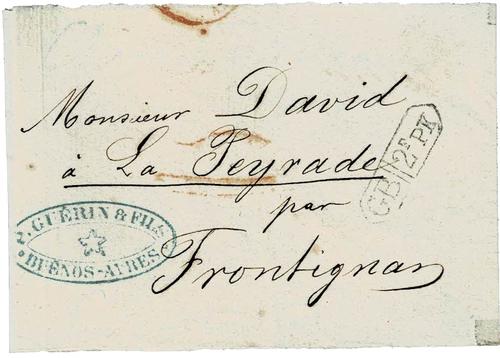 Monsieur David
à La Peyrade
par
Frontignan
GB 2F PK
GUÉRIN & FILS
BUENOS-AYRES